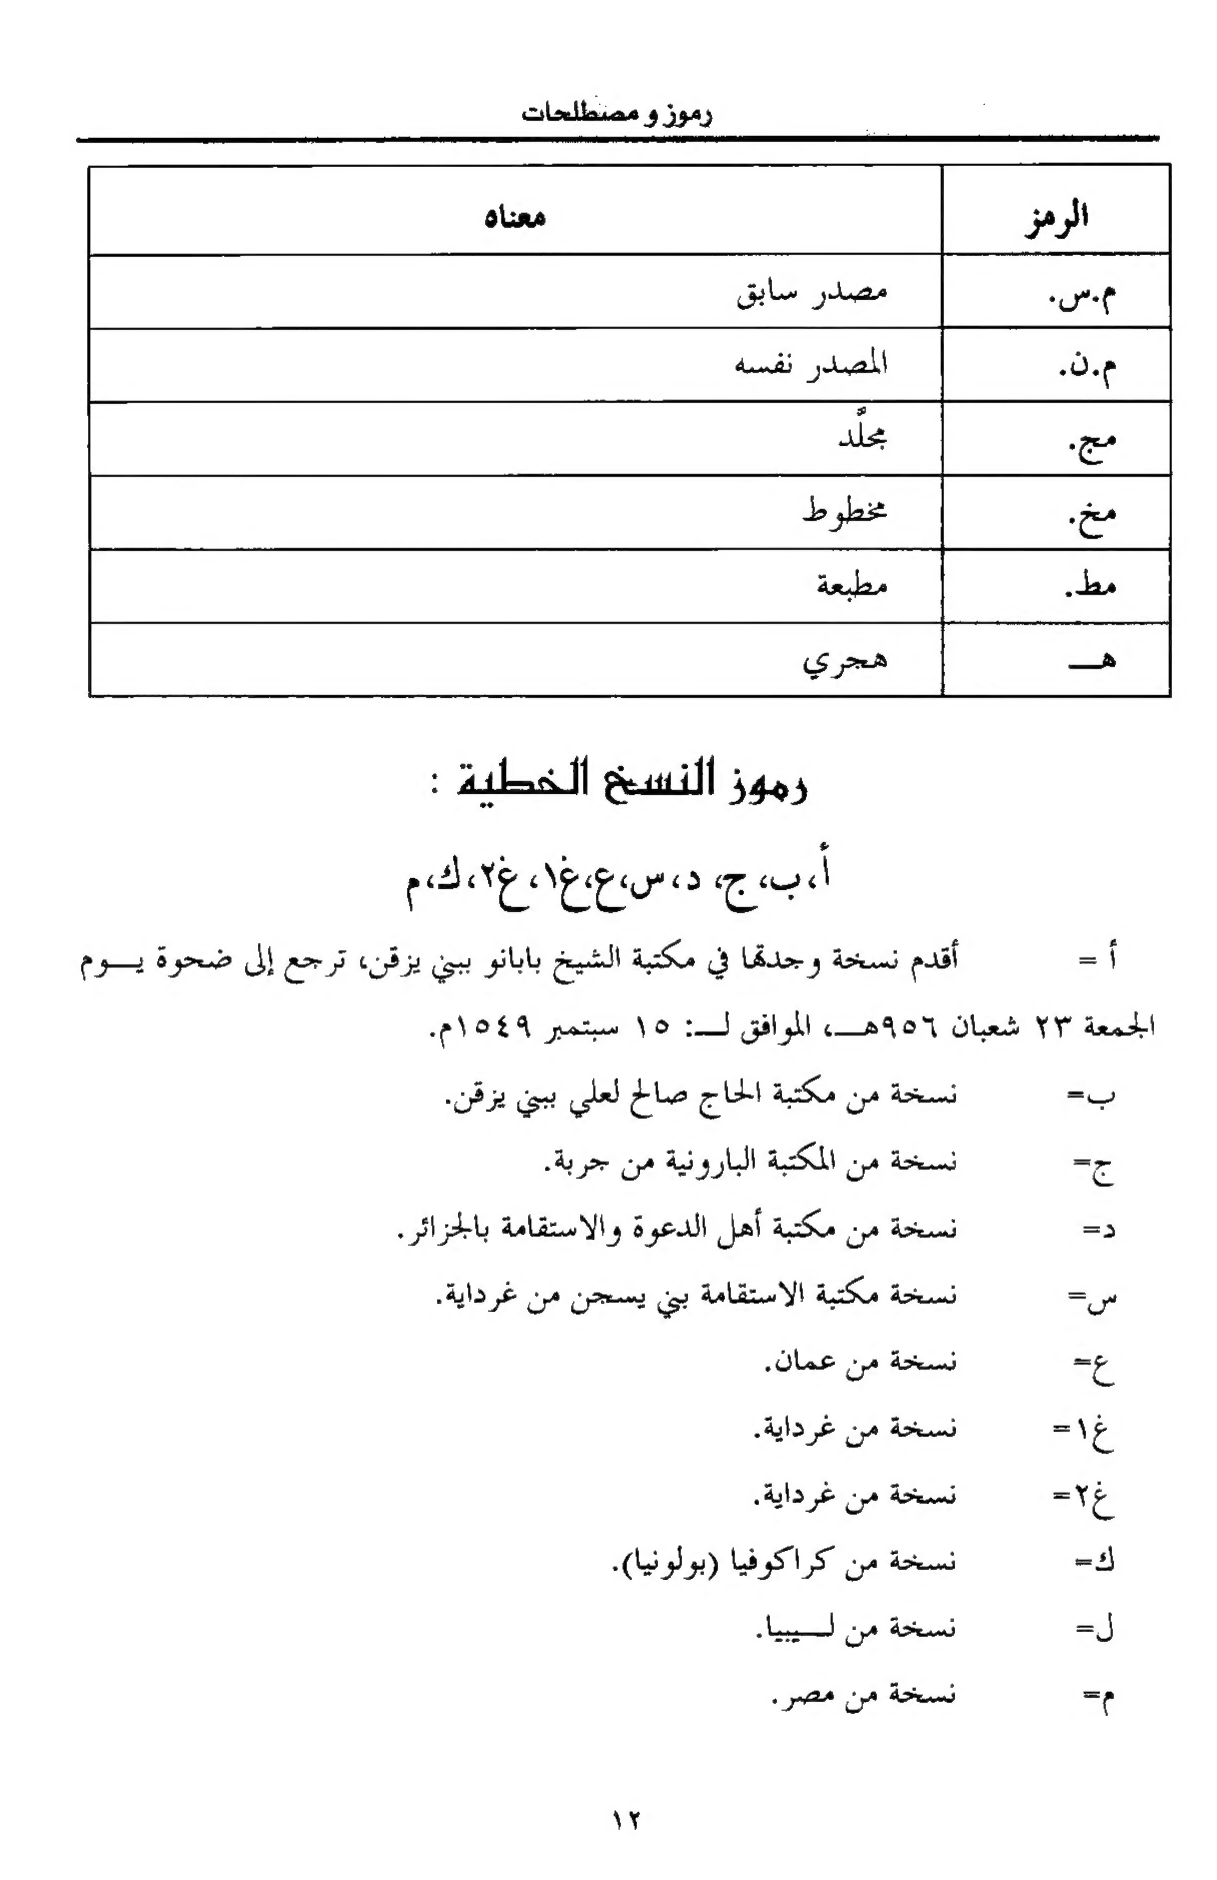 رموز و مصطلحات
الرمز معناه
م.س. مصدر سابق
م.ن. المصدر نفسه
مج. مجلَّد
مخ. مخطوط
مط. مطبعة
هـــ هجري
رموز النسخ الخطية :
أ،ب، ج، د،س،ع،غ١، غ٢،ك،م
أ = أقدم نسخة وجدتها في مكتبة الشيخ بابانو ببني يزقن، ترجع إلى ضحوة يـــوم
الجمعة ٢٣ شعبان ٩٥٦هـــ، الموافق لـــ: ١٥ سبتمبر ١٥٤٩م.
ب= نسخة من مكتبة الحاج صالح لعلي ببني يزقن.
ج= نسخة من المكتبة البارونية من جربة.
د= نسخة من مكتبة أهل الدعوة والاستقامة بالجزائر.
س= نسخة مكتبة الاستقامة بني يسجن من غرداية.
ع= نسخة من عمان.
غ١= نسخة من غرداية.
غ٢= نسخة من غرداية.
ك= نسخة من كراكوفيا (بولونيا).
ل= نسخة من لـــيبيا.
م= نسخة من مصر.
١٢